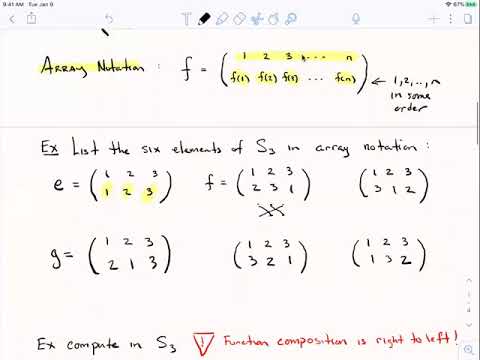 9:41 AM Tue Jan 9
67%
ARRAY NOTATION : f = ( 1 2 3 ... n
f(1) f(2) f(3) ... f(n) ) ← 1,2,..,n
in some
order
Ex List the six elements of S3 in array notation :
e = ( 1 2 3
1 2 3 ) f = ( 1 2 3
2 3 1 ) ( 1 2 3
3 1 2 )
g = ( 1 2 3
2 1 3 ) ( 1 2 3
3 2 1 ) ( 1 2 3
1 3 2 )
Ex compute in S3 ! Function composition is right to left!